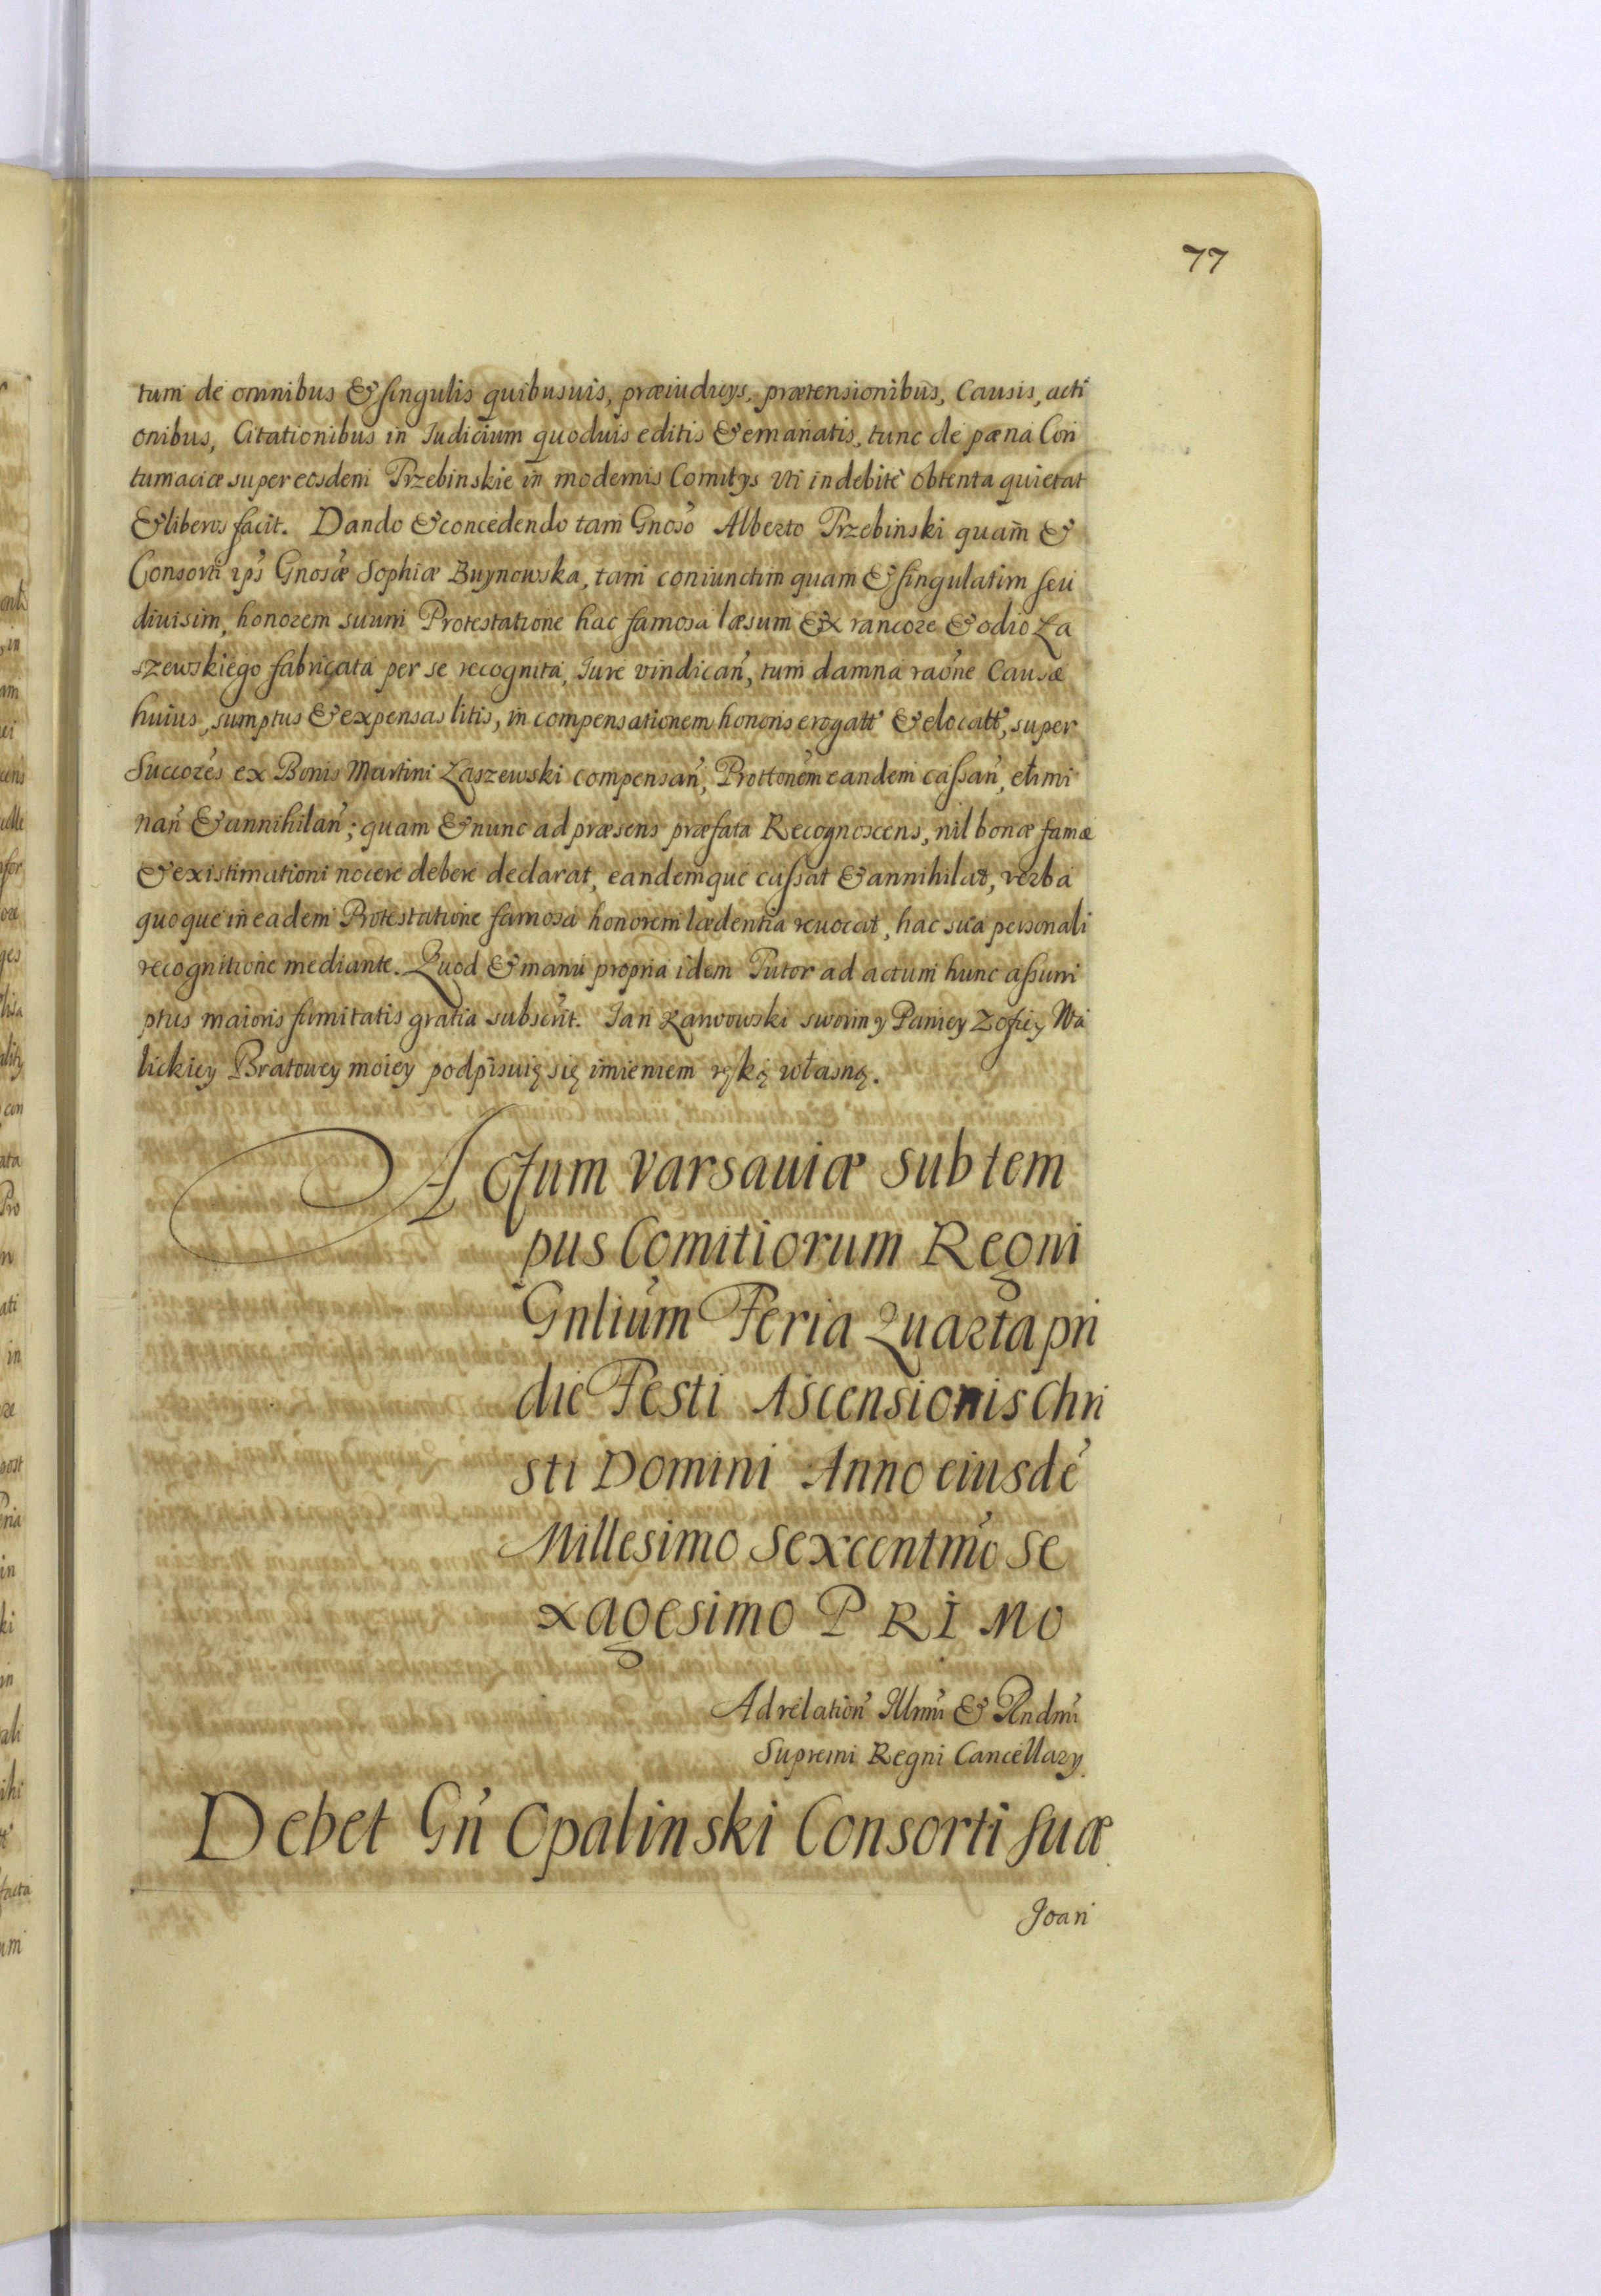 77
tum de omnibus & singulis quibusuis, præiudicys, prætensionibus, Causis, acti
onibus, Citationibus in Iudicium quoduis editis & emanatis, tunc de pæna Con
tumaciæ super eosdem Przebinskie in modernis Comitys uti indebite obtenta quietat
& liberos facit. Dando & concedendo tam Gnoso Alberto Przebinski quam &
Consorti ips Gnosæ Sophiæ Buynowska, tam coniunctim quam & singulatim seu
diuisim, honorem suum Protestatione hac famosa læsum & ex rancore & odio Ła
szewskiego fabricata per se recognita, Iure vindican, tum damna raone Causæ
huius, sumptus & expensas litis, in compensationem honoris erogatt & elocatt, super
Succores ex Bonis Martini Łaszewski compensan, Prottonem eandem cassan, elimi
nan & annihilan; quam & nunc ad præsens præfata Recognoscens, nil bonæ famæ
& existimationi nocere debere declarat, eandemque cassat & annihilat, verba
quoque in eadem Protestatione famosa honorem lædentia reuocat, hac sua personali
recognitione mediante. Quod & manu propria idem Tutor ad actum hunc assum
ptus maioris firmitatis gratia subscrit. Jan Zarwowski swoim y Paniey Zofiey Wa
lickiey Bratowey moiey podpisuię się imieniem ręką własną.
Actum Varsauiæ sub tem
pus Comitiorum Regni
Gnlium Feria Quarta pri
die Festi Ascensionis Chri
sti Domini Anno eiusdē
Millesimo Sexcentmo Se
xagesimo PRIMO
Ad relation Illmi & Rndmi
Supremi Regni Cancellary
Debet Gn Opalinski Consorti suæ
Joan